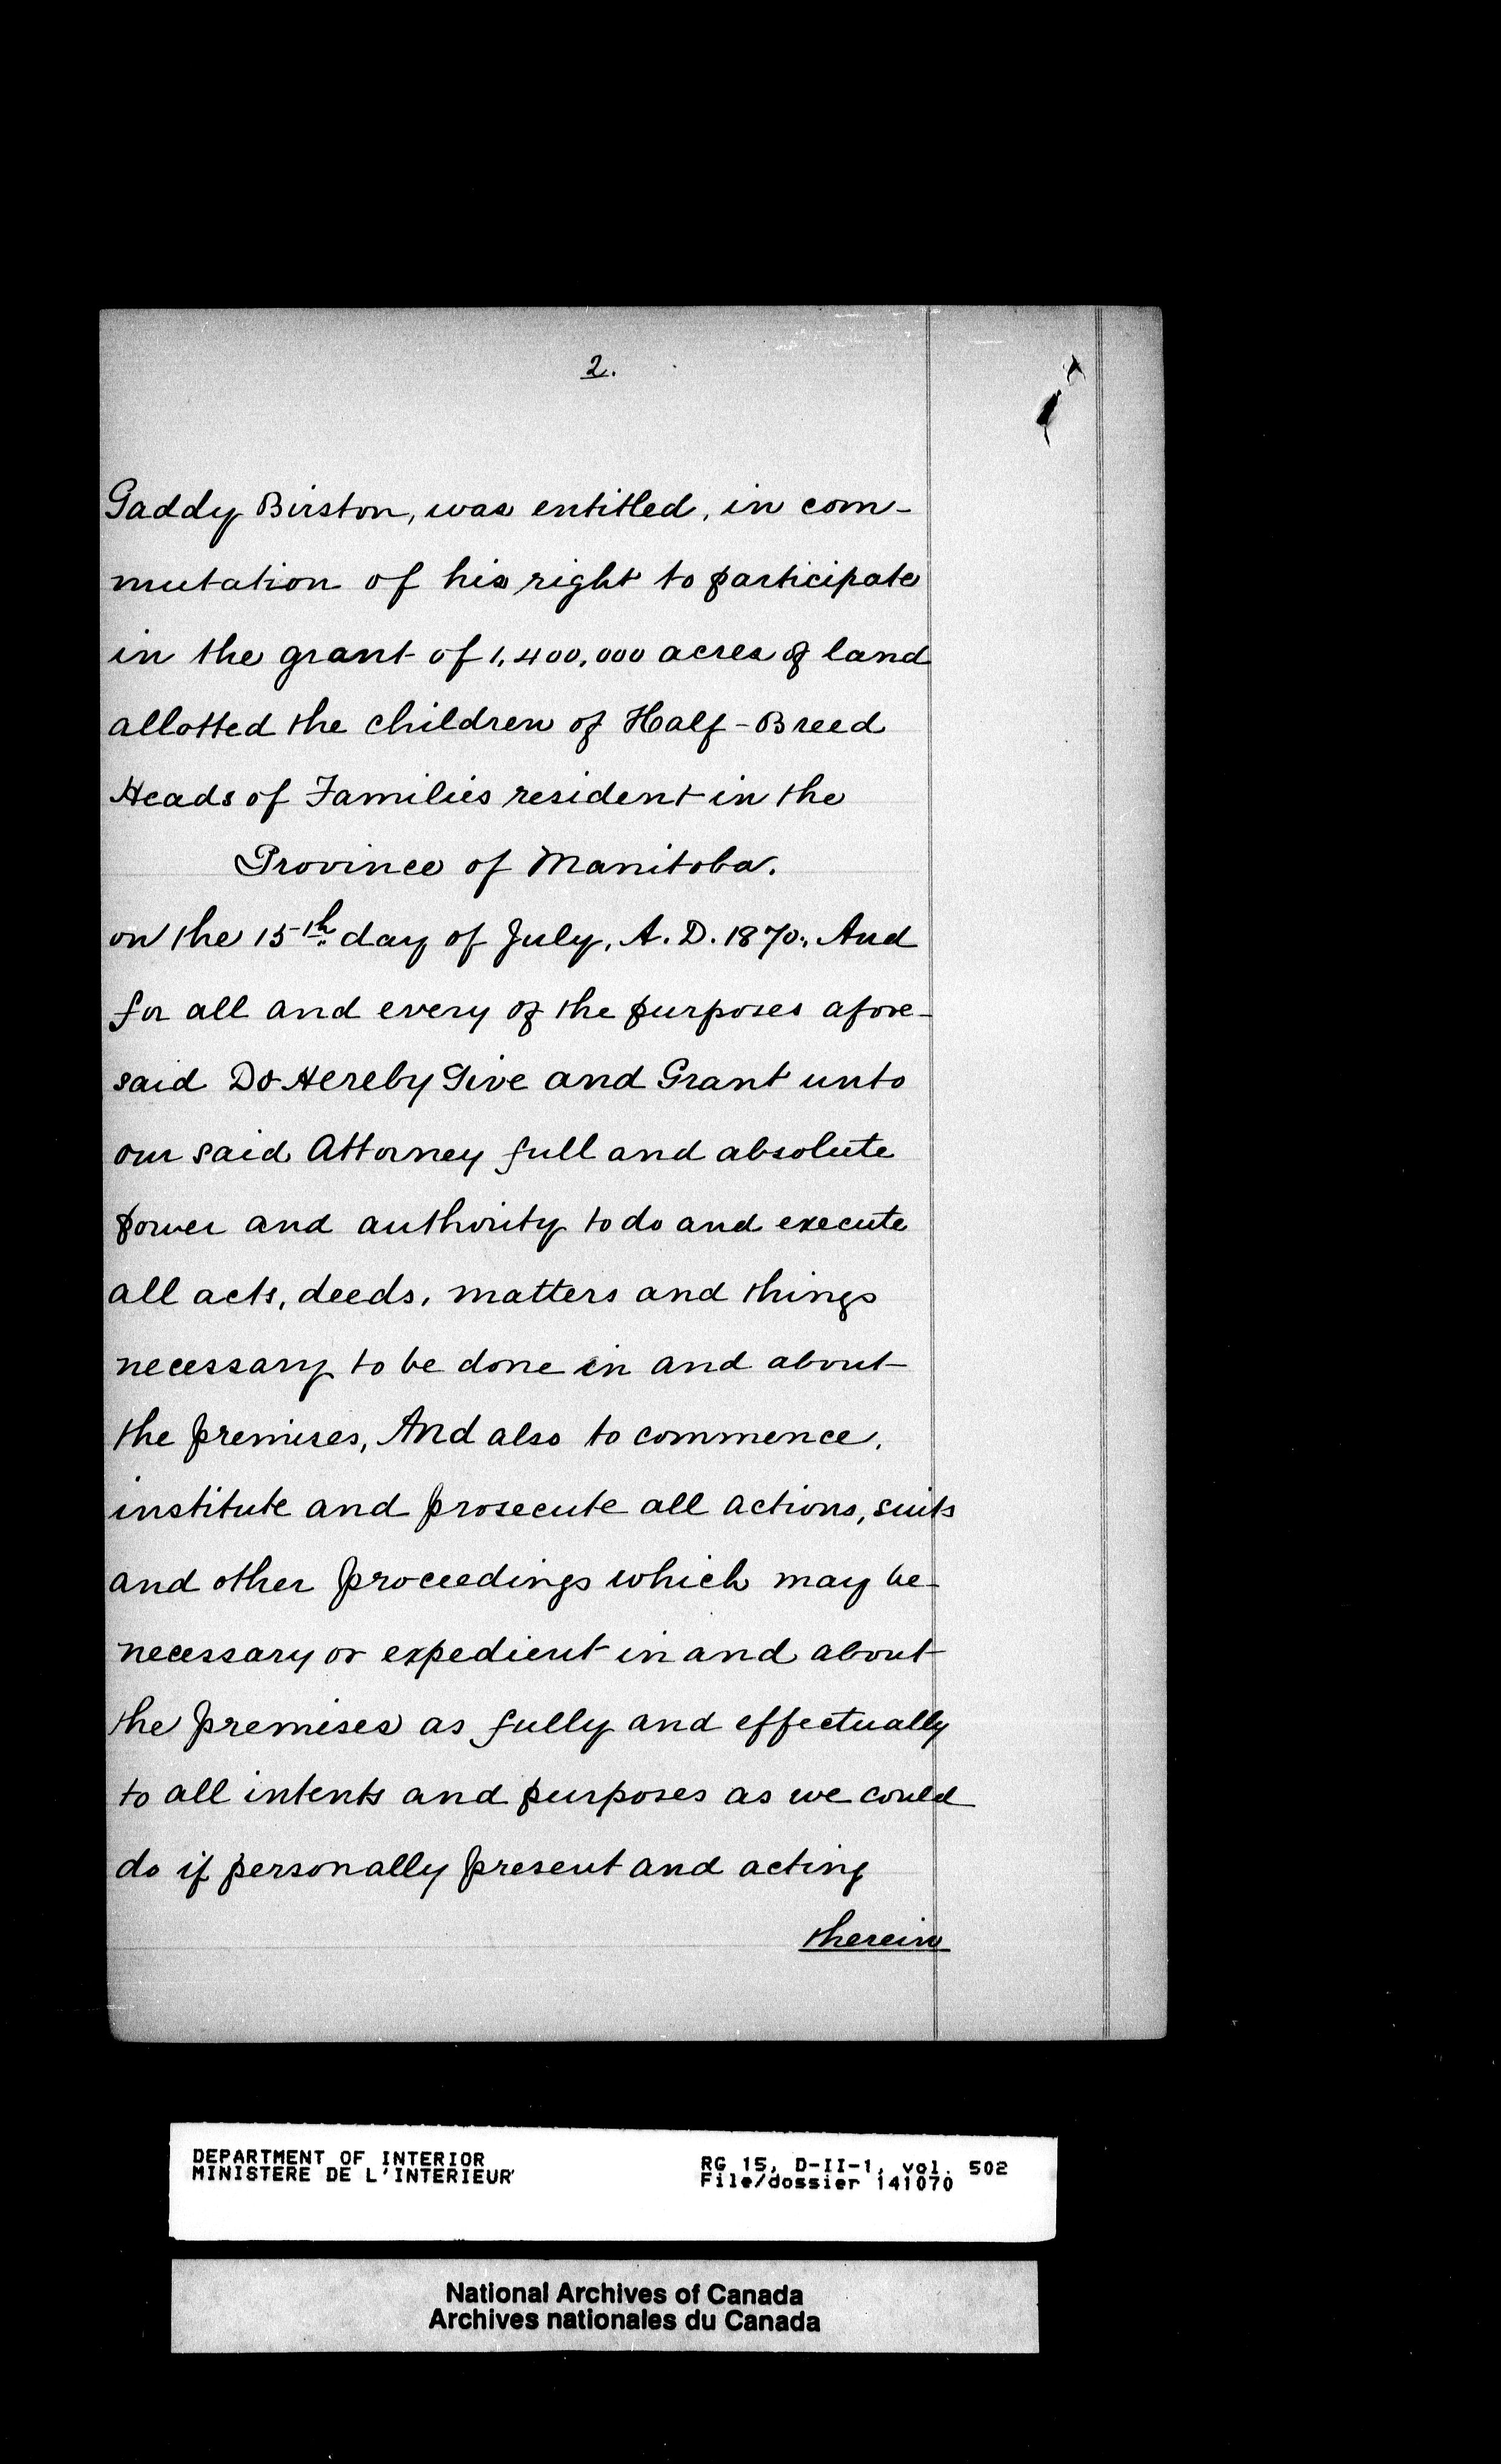 2.
Gaddy Birston, was entitled, in com-
mutation of his right to participate
in the grant of 1,400,000 acres of land
allotted the children of Half-Breed
Heads of Families resident in the
Province of Manitoba.
on the 15th day of July, A.D. 1870, And
for all and every of the purposes afore-
said Do Hereby Give and Grant unto
our said Attorney full and absolute
power and authority to do and execute
all acts, deeds, matters and things
necessary to be done in and about
the premises, And also to commence,
institute and prosecute all actions, suits
and other proceedings which may be
necessary or expedient in and about
the premises as fully and effectually
to all intents and purposes as we could
do if personally present and acting
therein
DEPARTMENT OF INTERIOR
MINISTERE DE L'INTERIEUR
RG 15, D-II-1, vol. 502
File/dossier 141070
National Archives of Canada
Archives nationales du Canada